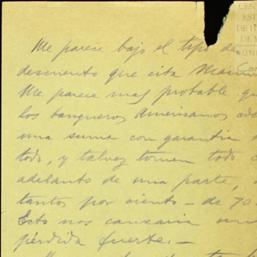 Me parece bajo el tipo de
descuento que cita
Me parece mas probable qu
los banqueros Americanos
una suma con garantia
todo, y talvez tomen todo
adelanto de una parte,
tantos por ciento - de 70
Esto nos causaria una
pérdida fuerte. -